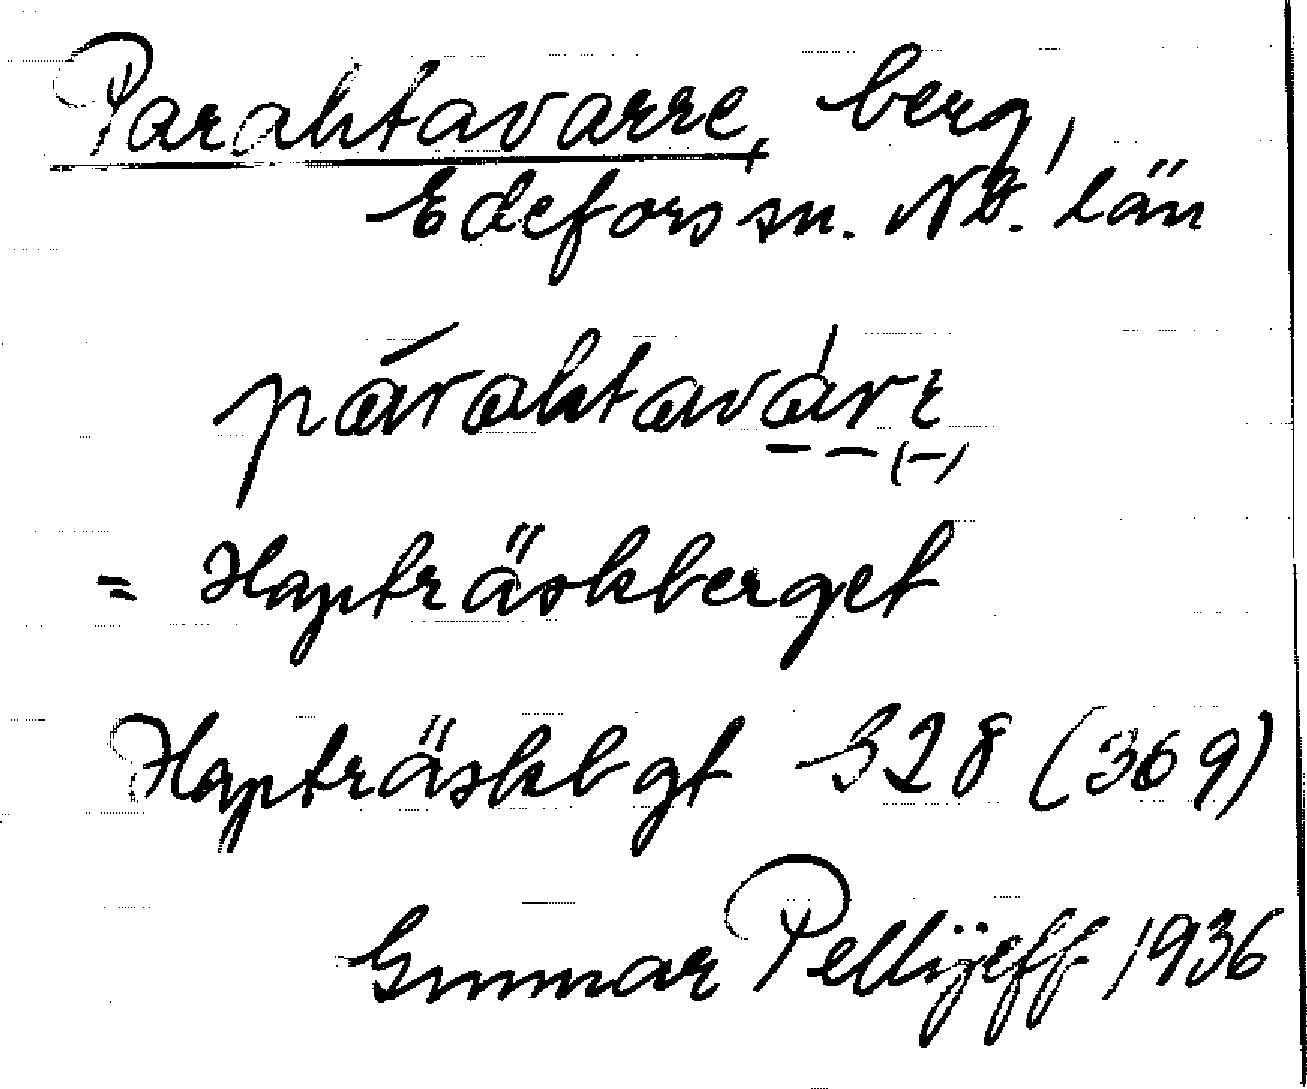 Parahtavarre, berg,
Edefors sn. Nb. län
párahtavárɛ
= Hapträskberget
Hapträskbgt 328 (369)
Gunnar Pellijeff 1936